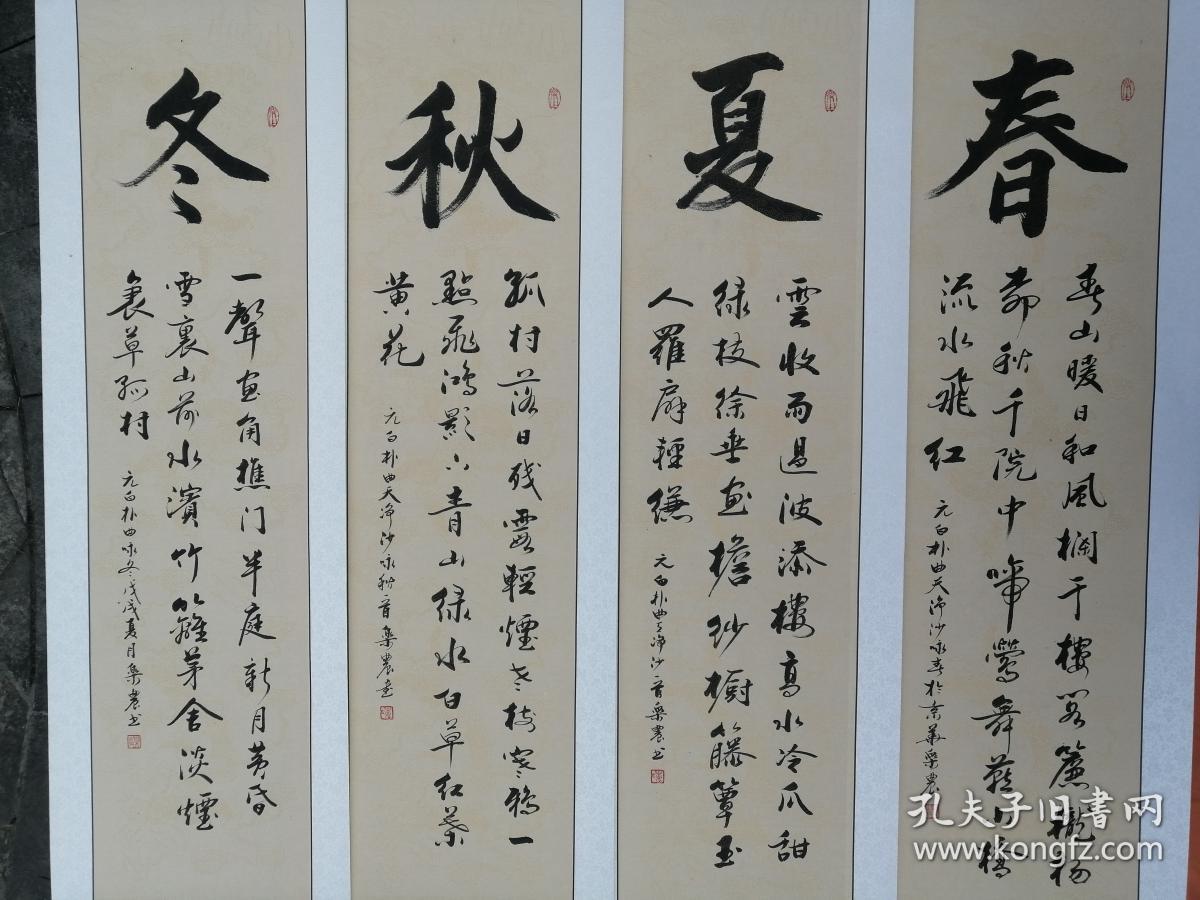 春
春山暖日和風欄干樓閣簾櫳楊
柳秋千院中啼鶯舞燕小橋
流水飛紅
元白朴曲天净沙咏春於京華樂農
夏
雲收雨過波添樓高水冷瓜甜
緑枝徐垂画檐紗橱籐簟玉
人羅扇輕縑
元白朴曲天净沙一首樂農书
秋
孤村落日残霞輕煙老樹寒鴉一
點飛鴻影下青山緑水百草红葉
黄花
元白朴曲天净沙咏秋一首樂農書
冬
一聲画角樵门半庭新月黄昏
雪裏山前水濱竹籬茅舍淡煙
衰草孤村
元白朴曲咏冬戊戌夏月樂農书
孔夫子旧书网
www.kongfz.com